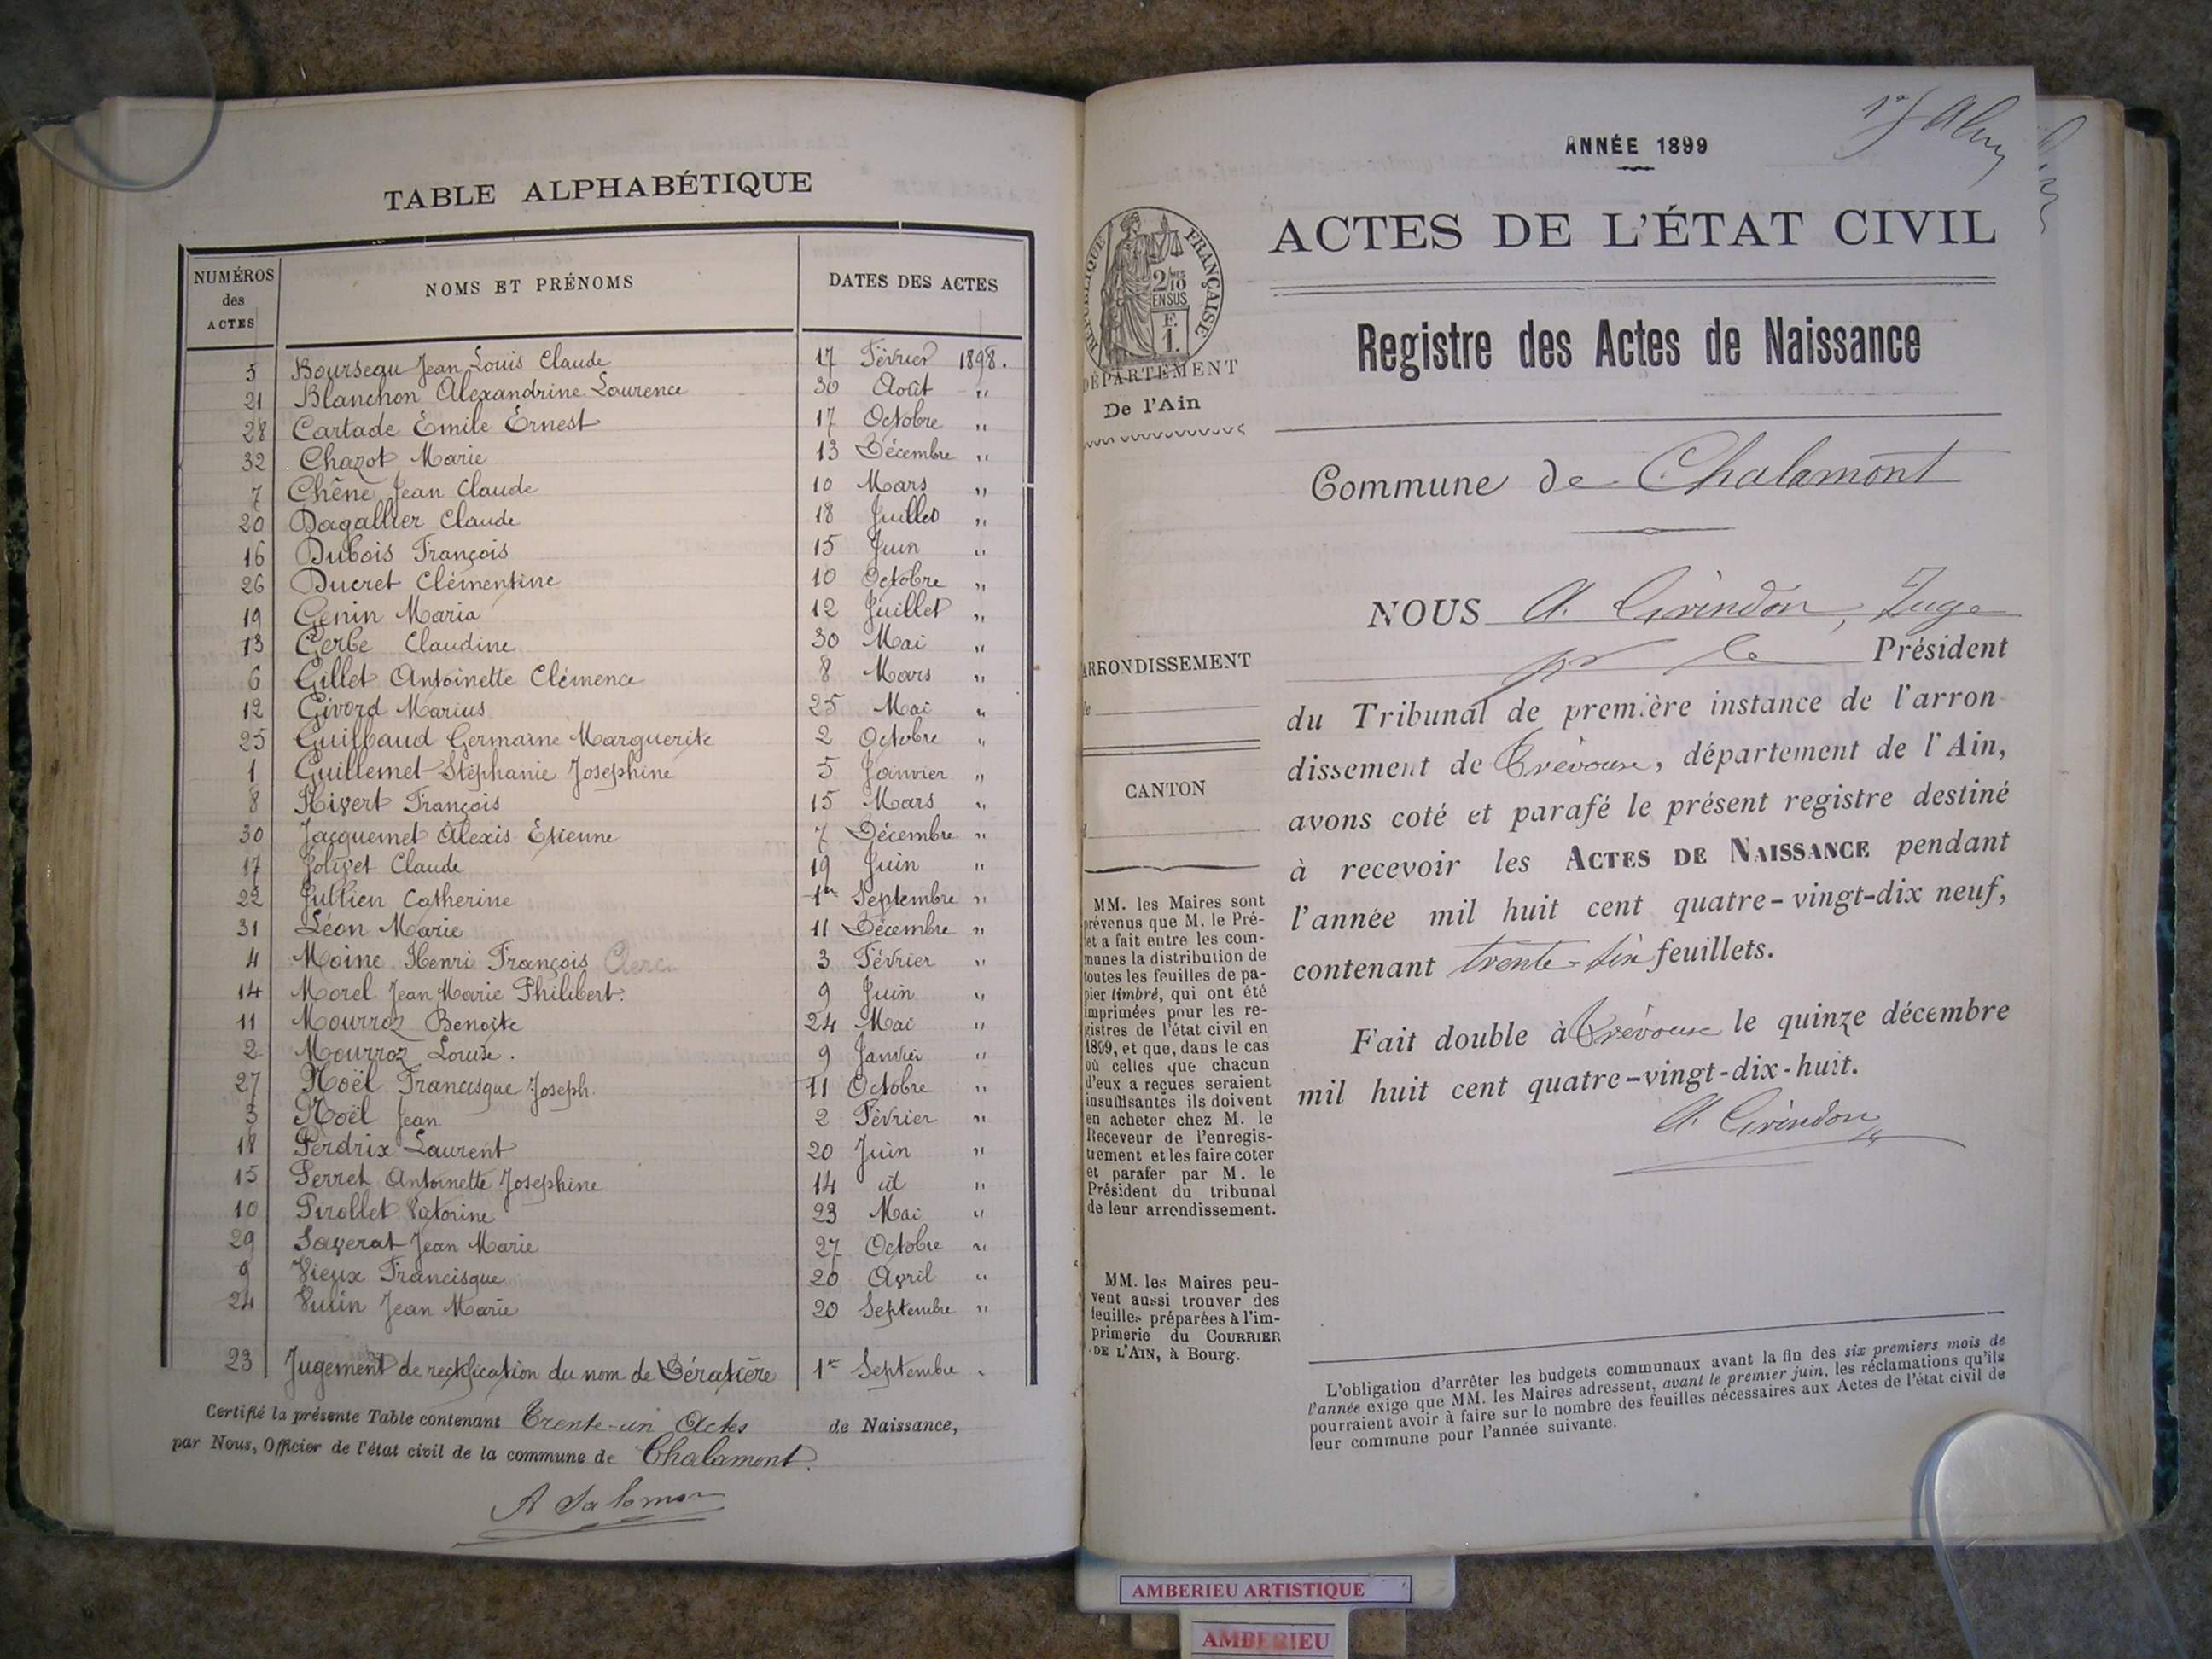 TABLE ALPHABÉTIQUE
NUMÉROS des ACTES NOMS ET PRÉNOMS DATES DES ACTES
5 Bourseau Jean Louis Claude 17 Février 1898.
21 Blanchon Alexandrine Laurence 30 Août "
28 Cartade Emile Ernest 17 Octobre "
32 Chazot Marie 13 Décembre "
7 Chêne Jean Claude 10 Mars "
20 Dagallier Claude 18 Juillet "
16 Dubois François 15 Juin "
26 Ducret Clémentine 10 Octobre "
19 Genin Maria 12 Juillet "
13 Gerbe Claudine 30 Mai "
6 Gillet Antoinette Clémence 8 Mars "
12 Givord Marius 25 Mai "
25 Guilbaud Germaine Marguerite 2 Octobre "
1 Guillemet Stéphanie Josephine 5 Janvier "
8 Hivert François 15 Mars "
30 Jacquemet Alexis Etienne 7 Décembre "
17 Jolivet Claude 19 Juin "
22 Jullien Catherine 1er Septembre "
31 Léon Marie 11 Décembre "
4 Moine Henri François 3 Février "
14 Morel Jean Marie Philibert. 9 Juin "
11 Mourroz Benoite 24 Mai "
2 Mourroz Louise. 9 Janvier "
27 Noël Francisque Joseph. 11 Octobre "
3 Noël Jean 2 Février "
18 Perdrix Laurent 20 Juin "
15 Perret Antoinette Josephine 14 id "
10 Pirollet Victorine 23 Mai "
29 Saverat Jean Marie 27 Octobre "
9 Vieux Francisque 20 Avril "
24 Vulin Jean Marie 20 Septembre "
23 Jugement de rectification du nom de 1er Septembre "
Certifié la présente Table contenant Trente-un Actes de Naissance,
par Nous, Officier de l'état civil de la commune de Chalamont.
A Salomon
ANNÉE 1899
RÉPUBLIQUE FRANÇAISE
2/10 EN SUS
E.
1.
DÉPARTEMENT
De l'Ain
ACTES DE L'ÉTAT CIVIL
Registre des Actes de Naissance
Commune de Chalamont
NOUS A. Girindon, Juge
pr le Président
du Tribunal de première instance de l'arron
dissement de Trévoux, département de l'Ain,
avons coté et parafé le présent registre destiné
à recevoir les ACTES DE NAISSANCE pendant
l'année mil huit cent quatre-vingt-dix neuf,
contenant trente-six feuillets.
Fait double à Trévoux le quinze décembre
mil huit cent quatre-vingt-dix-huit.
A. Girindon
ARRONDISSEMENT
CANTON
MM. les Maires sont
prévenus que M. le Pré-
fet a fait entre les com-
munes la distribution de
toutes les feuilles de pa-
pier timbré, qui ont été
imprimées pour les re-
gistres de l'état civil en
1899, et que, dans le cas
où celles que chacun
d'eux a reçues seraient
insuffisantes ils doivent
en acheter chez M. le
Receveur de l'enregis-
trement et les faire coter
et parafer par M. le
Président du tribunal
de leur arrondissement.
MM. les Maires peu-
vent aussi trouver des
feuilles préparées à l'im-
primerie du COURRIER
DE L'AIN, à Bourg.
L'obligation d'arrêter les budgets communaux avant la fin des six premiers mois de
l'année exige que MM. les Maires adressent, avant le premier juin, les réclamations qu'ils
pourraient avoir à faire sur le nombre des feuilles nécessaires aux Actes de l'état civil de
leur commune pour l'année suivante.
AMBERIEU ARTISTIQUE
AMBERIEU